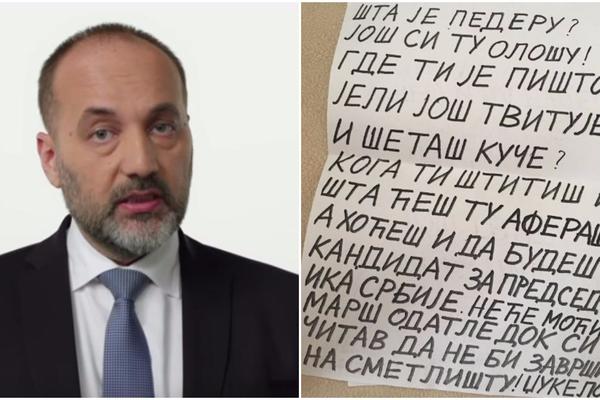 ШТА ЈЕ ПЕДЕРУ?
ЈОШ СИ ТУ ОЛОШУ!
ГДЕ ТИ ЈЕ ПИШТО
ЈЕЛИ ЈОШ ТВИТУЈЕ
И ШЕТАШ КУЧЕ?
КОГА ТИ ШТИТИШ
ШТА ЋЕШ ТУ АФЕРАШ
А ХОЋЕШ И ДА БУДЕШ
КАНДИДАТ ЗА ПРЕДСЕД
ИКА СРБИЈЕ. НЕЋЕ МОЋИ
МАРШ ОДАТЛЕ ДОК СИ
ЧИТАВ ДА НЕ БИ ЗАВРШИ
НА СМЕТЛИШТУ! ЏУКЕЛО